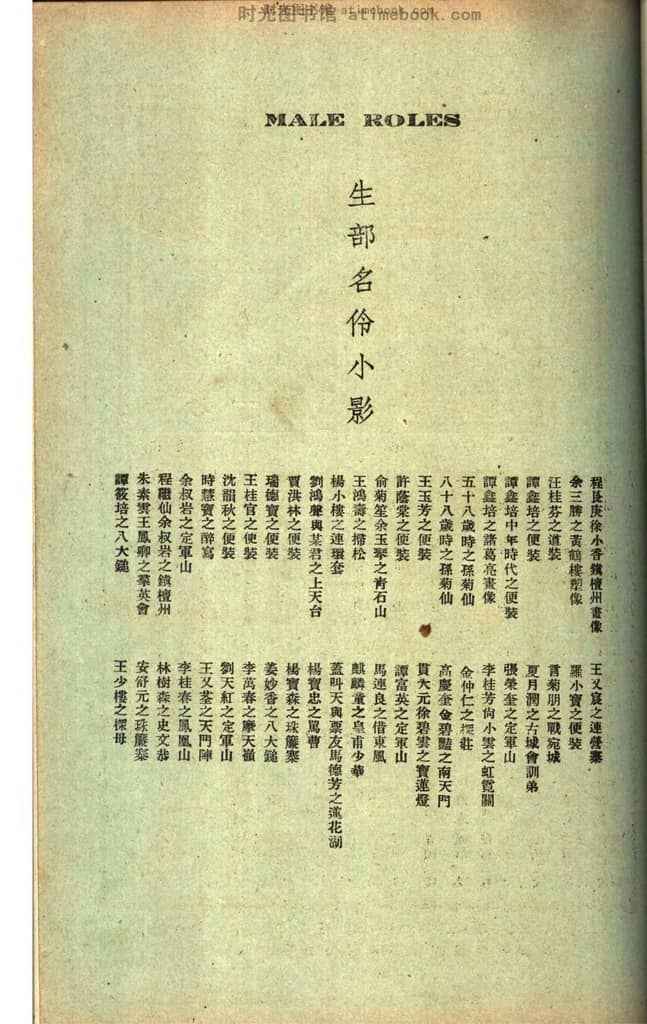 时光图书馆 atimebook.com
MALE ROLES
生部名伶小影
程長庚徐小香鎮檀州畫像
余三勝之黃鶴樓塑像
汪桂芬之道裝
譚鑫培之便裝
譚鑫培中年時代之便裝
譚鑫培之諸葛亮畫像
五十八歲時之孫菊仙
八十八歲時之孫菊仙
王玉芳之便裝
許蔭棠之便裝
俞菊笙余玉琴之青石山
王鴻壽之掃松
楊小樓之連環套
劉鴻聲與某君之上天台
賈洪林之便裝
瑞德寶之便裝
王桂官之便裝
沈韻秋之便裝
時慧寶之醉寫
余叔岩之定軍山
程繼仙余叔岩之鎮檀州
朱素雲王鳳卿之羣英會
譚筱培之八大鎚
王又宸之連營寨
羅小寶之便裝
言菊朋之戰宛城
夏月潤之古城會訓弟
張榮奎之定軍山
李桂芳尙小雲之虹霓關
金仲仁之探莊
高慶奎金碧豔之南天門
貫大元徐碧雲之寶蓮燈
譚富英之定軍山
馬連良之借東風
麒麟童之皇甫少華
蓋叫天與票友馬德芳之蓮花湖
楊寶忠之罵曹
楊寶森之珠簾寨
姜妙香之八大鎚
李萬春之摩天嶺
劉天紅之定軍山
王又荃之天門陣
李桂春之鳳凰山
林樹森之史文恭
安舒元之珠簾寨
王少樓之探母